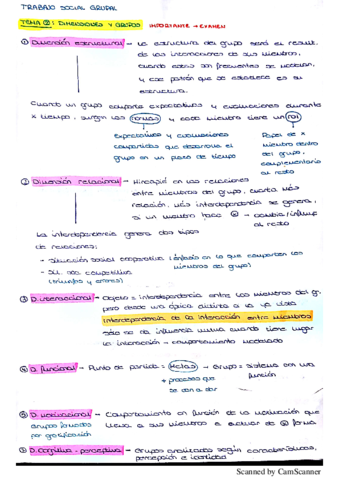 TRABAJO SOCIAL GRUPAL
TEMA 2: DIMENSIONES Y GRUPOS IMPORTANTE → EXAMEN
① Dimensión estructural → la estructura del grupo será el result.
de las interacciones de sus miembros,
cuando estas son frecuentes se modelan,
y ese patrón que se establece es su
estructura.
Cuando un grupo comparte expectativas y evaluaciones durante
x tiempo, surgen las normas y cada miembro tiene un rol
Expectativas y evaluaciones
compartidas que desarrolla el
grupo en un plazo de tiempo
Papel de x
miembro dentro
del grupo,
complementario
al resto
② Dimensión relacional → Hincapié en las relaciones
entre miembros del grupo, cuanta más
relación, más interdependencia se genera,
si un miembro hace → cambia/influye
al resto
La interdependencia genera dos tipos
de relaciones:
→ Situación social cooperativa (énfasis en lo que comparten los
miembros del grupo)
→ Sit. soc. competitiva
(triunfos y errores)
③ D. interaccional → Objeto = interdependencia entre los miembros del gr.
pero desde una óptica distinta a la ya vista
interdependencia de la interacción entre miembros
sólo se da influencia mutua cuando tiene lugar
la interacción → comportamiento modelado
④ D. funcional → Punto de partida: Metas → Grupo = sistema con una
función
+ procesos que
se dan a dar
⑤ D. motivacional → Comportamiento en función de la motivación que
Grupos formados
por gratificación
lleva a sus miembros a actuar de forma
⑥ D. Cognitivo - perceptiva → Grupos analizados según características,
percepción e identidad
Scanned by CamScanner